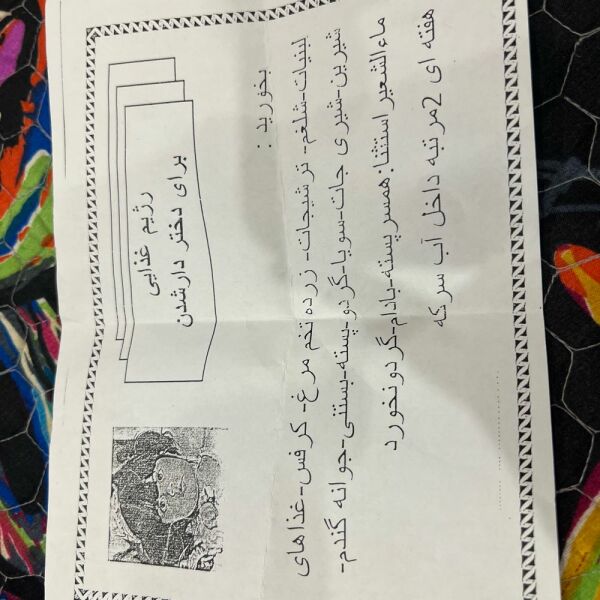 رژیم غذایی
برای دختر دار شدن
بخورید :
لبنیات-شلغم- ترشیجات- زرده تخم مرغ- کرفس-غذاهای
شیرین-شیری جات-سویا-گردو-پسته-بستنی-جوانه گندم-
ماءالشعیر استثنا: همسر پسته-بادام-گردو نخورد
هفته ای 2مرتبه داخل آب سرکه